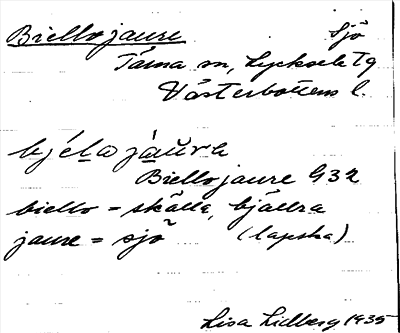 Biellojaure Sjö
Tärna sn, Lycksele Tg
Västerbottens l.
bjéla jáuvrɛ
Biellojaure G32
biello = skälla, bjällra
jaure = sjö (lapska)
Lisa Lidberg 1935